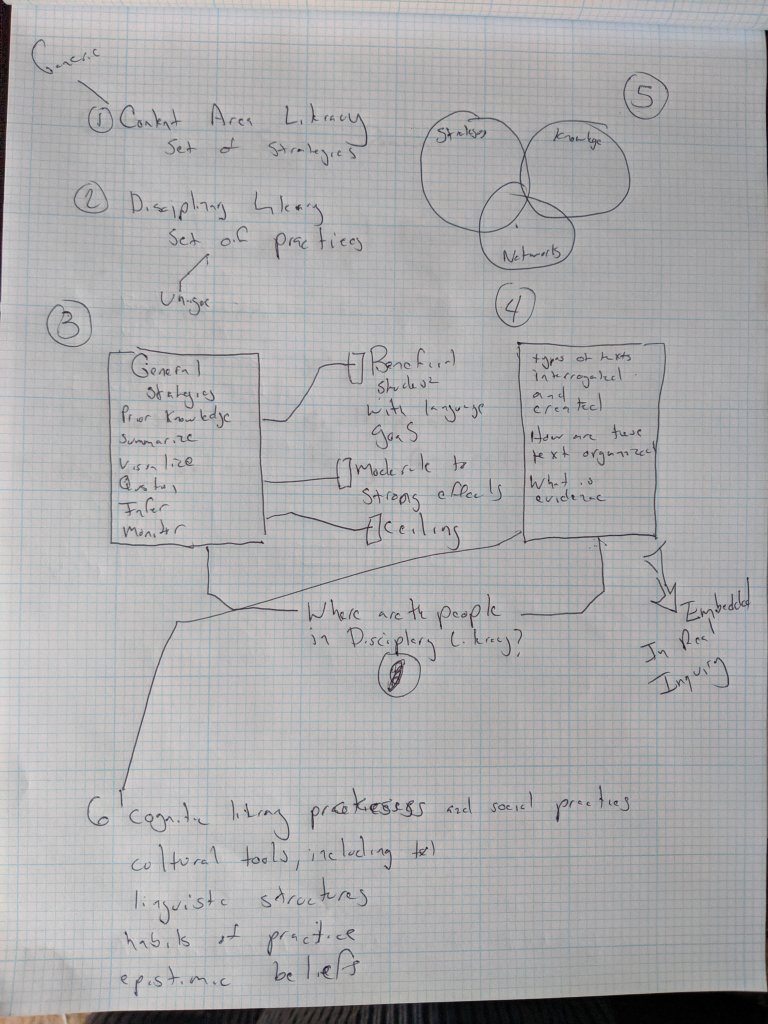 Generic
1 Content Area Literacy
Set of Strategies
2 Disciplinary Literacy
Set of practices
Unique
5
Strategies
Knowledge
Networks
3
General
Strategies
Prior Knowledge
Summarize
Visualize
Infer
Monitor
Beneficial
with language
goals
Moderate to
Strong effects
Ceiling
4
types of texts
interrogated
and
created
How are these
text organized
What is
evidence
Embedded
In Real
Inquiry
Where are the people
in Disciplinary Literacy?
6 Cognitive literacy processes and social practices
cultural tools, including
linguistic structures
habits of practice
epistimic beliefs